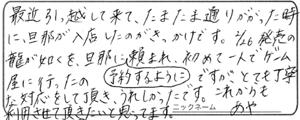 最近引っ越して来て、たまたま通りがかった時
に、旦那が入店したのがきっかけです。2/26 発売の
龍が如くを、旦那に頼まれ、初めて一人でゲーム
屋に行ったの(予約するように)ですが、とても丁寧
な対応をして頂き、うれしかったです。これからも
利用させて頂きたいと思ってます。
ニックネーム あや